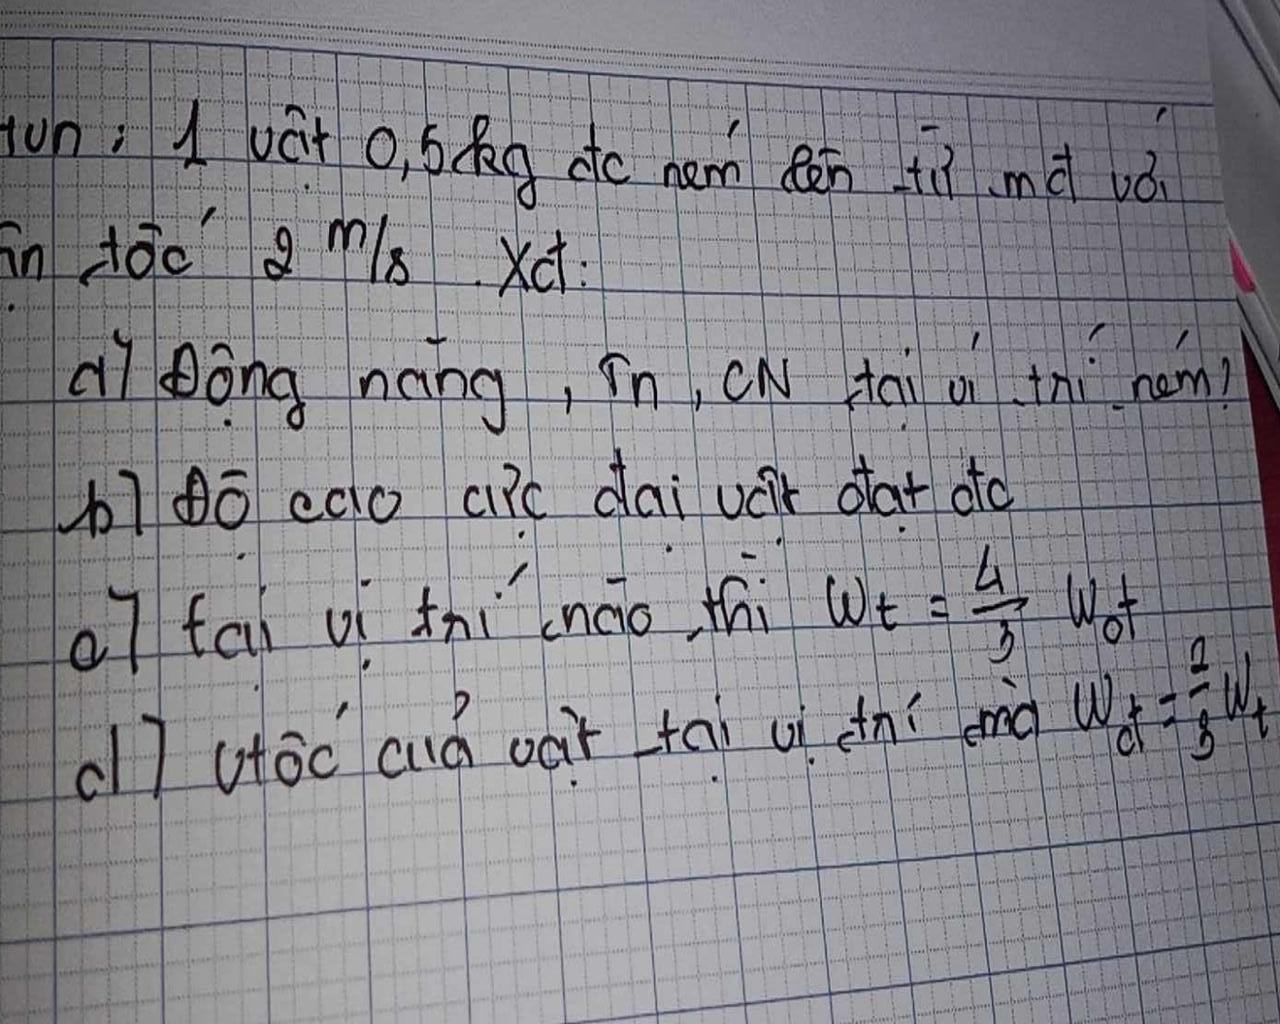 1 vật 0,5kg đc ném lên từ mđ với
tốc 2 m/s. Xđ:
a) Động năng, Tn, CN tại vị trí ném?
b) Độ cao cực đại vật đạt đc
c) tại vị trí nào thì Wt = 4/3 Wđ
d) Vtốc của vật tại vị trí mà Wđ = 2/3 Wt